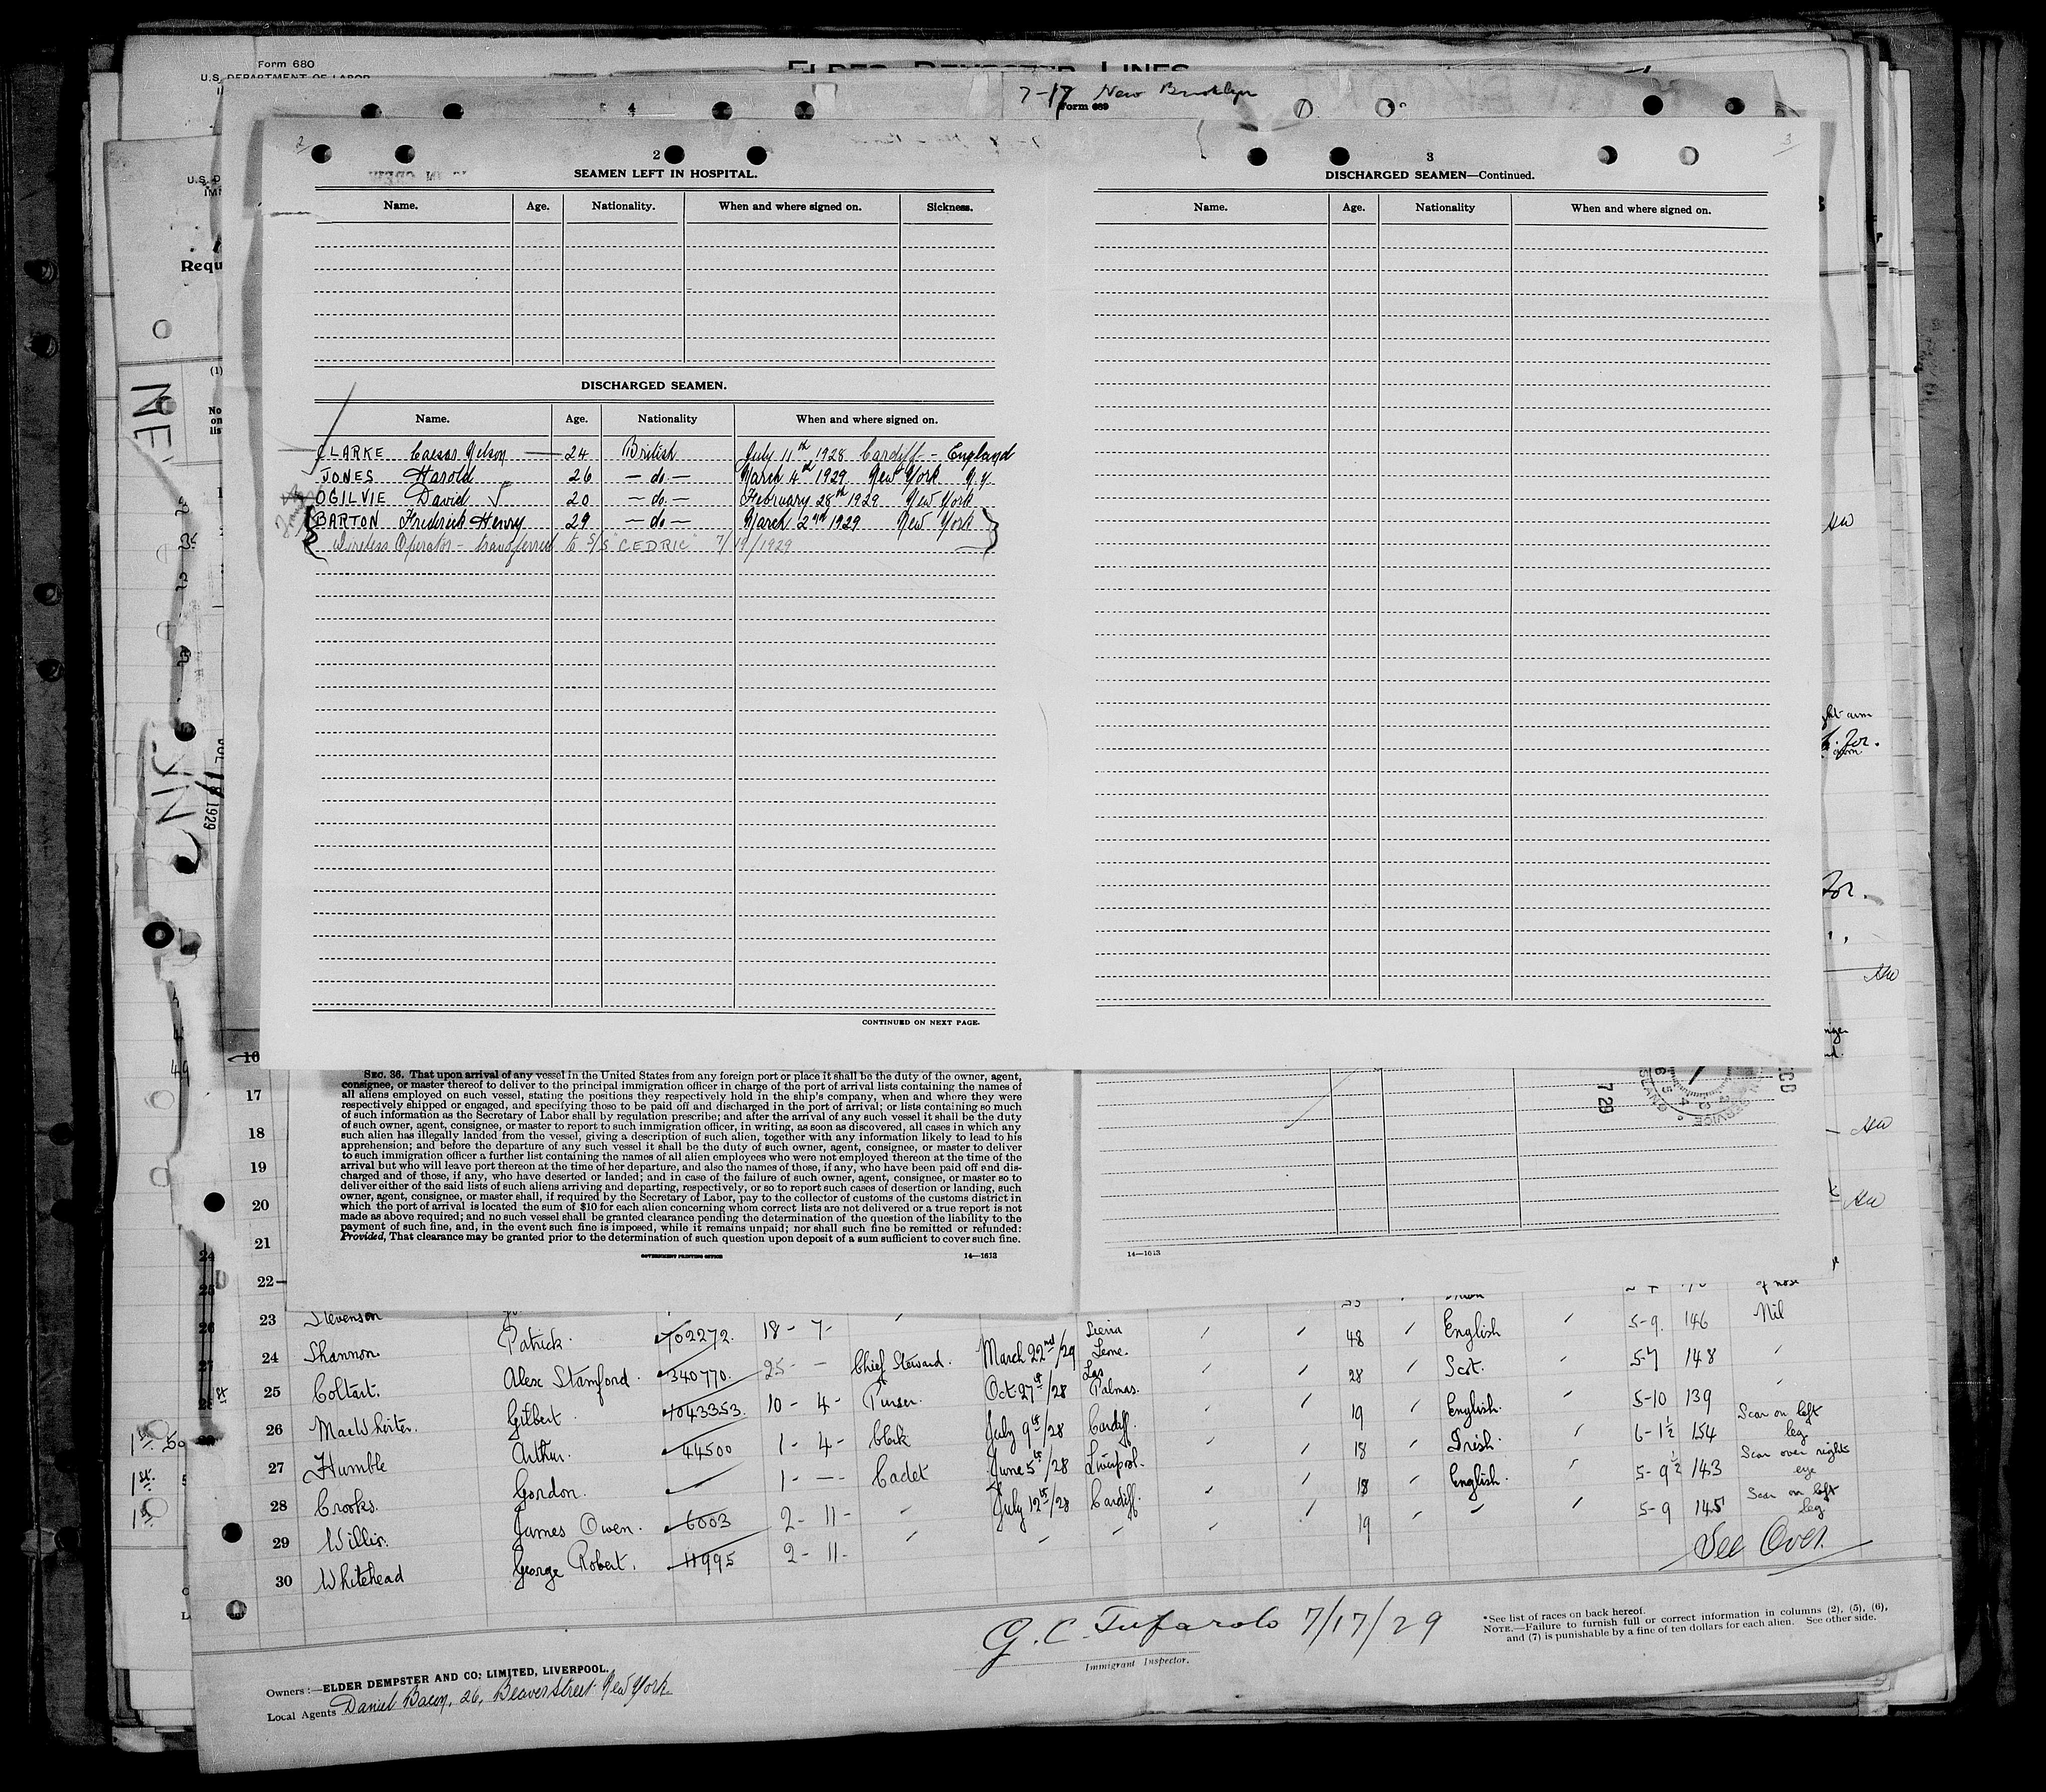 Form 680
U.S. DEPARTMENT OF LABOR
ELDER DEMPSTER LINES
7-17 New Brooklyn
Form 689
4
2
3
2
SEAMEN LEFT IN HOSPITAL.
Name. Age. Nationality. When and where signed on. Sickness.
DISCHARGED SEAMEN.
Name. Age. Nationality When and where signed on.
CLARKE Caesar Nelson 24 British July 11th 1928 Cardiff - England
JONES Harold 26 - do - March 4th 1929 New York N.Y
OGILVIE David 20 - do - February 28th 1929 New York
BARTON Frederick Henry 29 - do - March 2nd 1929 New York
Wireless Operator - transferred to S/S "CEDRIC" 7/19/1929
CONTINUED ON NEXT PAGE.
3
DISCHARGED SEAMEN—Continued.
Name. Age. Nationality When and where signed on.
Requ
(1)
1929
SEC. 36. That upon arrival of any vessel in the United States from any foreign port or place it shall be the duty of the owner, agent,
consignee, or master thereof to deliver to the principal immigration officer in charge of the port of arrival lists containing the names of
all aliens employed on such vessel, stating the positions they respectively hold in the ship's company, when and where they were
respectively shipped or engaged, and specifying those to be paid off and discharged in the port of arrival; or lists containing so much
of such information as the Secretary of Labor shall by regulation prescribe; and after the arrival of any such vessel it shall be the duty
of such owner, agent, consignee, or master to report to such immigration officer, in writing, as soon as discovered, all cases in which any
such alien has illegally landed from the vessel, giving a description of such alien, together with any information likely to lead to his
apprehension; and before the departure of any such vessel it shall be the duty of such owner, agent, consignee, or master to deliver
to such immigration officer a further list containing the names of all alien employees who were not employed thereon at the time of the
arrival but who will leave port thereon at the time of her departure, and also the names of those, if any, who have been paid off and dis-
charged and of those, if any, who have deserted or landed; and in case of the failure of such owner, agent, consignee, or master so to
deliver either of the said lists of such aliens arriving and departing, respectively, or so to report such cases of desertion or landing, such
owner, agent, consignee, or master shall, if required by the Secretary of Labor, pay to the collector of customs of the customs district in
which the port of arrival is located the sum of $10 for each alien concerning whom correct lists are not delivered or a true report is not
made as above required; and no such vessel shall be granted clearance pending the determination of the question of the liability to the
payment of such fine, and, in the event such fine is imposed, while it remains unpaid; nor shall such fine be remitted or refunded:
Provided, That clearance may be granted prior to the determination of such question upon deposit of a sum sufficient to cover such fine.
GOVERNMENT PRINTING OFFICE 14—1613
14—1613
729
16
17
18
19
20
21
22
23 Stevenson
24 Shannon Patrick. 702272. 18 - 7 - March 22nd/29 Sierra Leone. 48 English 5-9. 146 Nil
25 Coltart. Alex Stamford. 340770. 25 - - Chief Steward. Oct 27th/28 Las Palmas. 28 Scot. 5-7 148
26 MacWhirter. Gilbert. 1043353. 10 - 4 - Purser. July 9th/28 Cardiff. 19 English. 5-10 139
27 Humble Arthur. 44500 1 - 4 - Clerk June 5th/28 Liverpool. 18 Irish. 6-1½ 154 Scar on left leg
28 Crooks. Gordon. 1 - - - Cadet July 12th/28 Cardiff. 18 English. 5-9½ 143 Scar over right eye
29 Willis. James Owen. 6003 2 - 11 - 19 5-9 145 Scar on left leg
30 Whitehead George Robert. 11995 2 - 11 -
See Over.
G. C. Tufarolo 7/17/29
Immigrant Inspector.
*See list of races on back hereof.
NOTE.—Failure to furnish full or correct information in columns (2), (5), (6),
and (7) is punishable by a fine of ten dollars for each alien. See other side.
Owners:—ELDER DEMPSTER AND CO: LIMITED, LIVERPOOL.
Local Agents Daniel Bacon, 26, Beaver Street New York